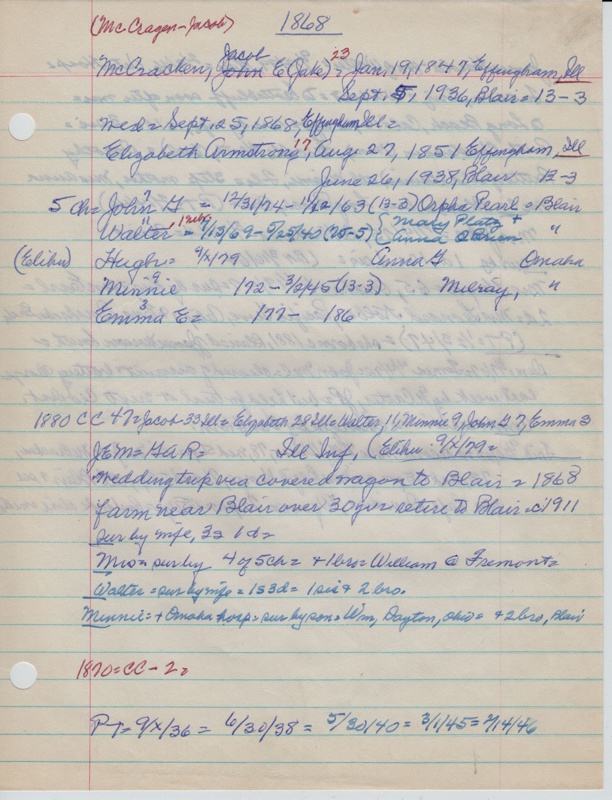 (McCragen-Jacob) 1868
Jacob 23
McCracken, John E (Jake) = Jan, 19, 1847, Effingham, Ill
Sept, 5, 1936, Blair = 13-3
med = Sept, 25, 1868, Effingham Ill =
Elizabeth Armstrong, 17, Aug 27, 1851 Effingham, Ill
June 26, 1938, Blair 13-3
5 ch = John G = 12/31/74 - 11/22/63 (13-3) Orpha Pearl = Blair
Walter = 9/13/69 - 5/25/40 (25-5) { Mary Platz + Anna O'Brien "
(Elihu) Hugh = 9/x/79 Anna G Omaha
Minnie 9 172 - 3/2/45 (13-3) Milray, "
Emma E = 3 177 - 186
1880 CC 47 = Jacob 33 Ill = Elizabeth 28 Ill = Walter, 11, Minnie 9, John G 7, Emma 3
JEM = GAR = Ill Inf, (Elihu 9/x/79 =
wedding trip via covered wagon to Blair = 1868
farm near Blair over 30 yr = retire to Blair c 1911
sur by wife, 3s 1d =
Mrs = sur by 4 of 5 ch = + 1 bro = William @ Fremont =
Walter = sur by wife = 1s 3d = 1 sis & 2 bro.
Minnie = + Omaha hosp = sur by son = Wm, Dayton, Ohio = + 2 bro, Blair
1870 = CC - 2 =
P-T = 9/x/36 = 6/30/38 = 5/30/40 = 3/1/45 = 2/14/46